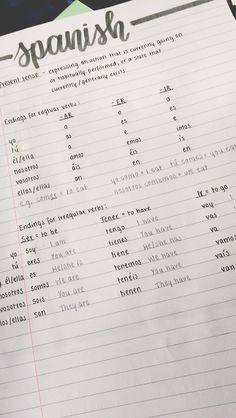 spanish
Present tense - expressing an action that is currently going on
or habitually performed, or a state that
currently/generally exists.
Endings for regular verbs:
-AR -ER -IR
yo o o o
tú as es es
él/ella a e e
nosotros amos emos imos
vosotros áis éis ís
ellos/ellas an en en
e.g. comer = to eat yo como = I eat tú comes = you eat
nosotros comemos = we eat
Endings for irregular verbs:
Ser = to be Tener = to have Ir = to go
yo soy I am tengo I have voy
tú eres You are tienes You have vas
él/ella es He/she is tiene He/she has va
nosotros somos We are tenemos We have vamos
vosotros sois You are tenéis You have vais
ellos/ellas son They are tienen They have van